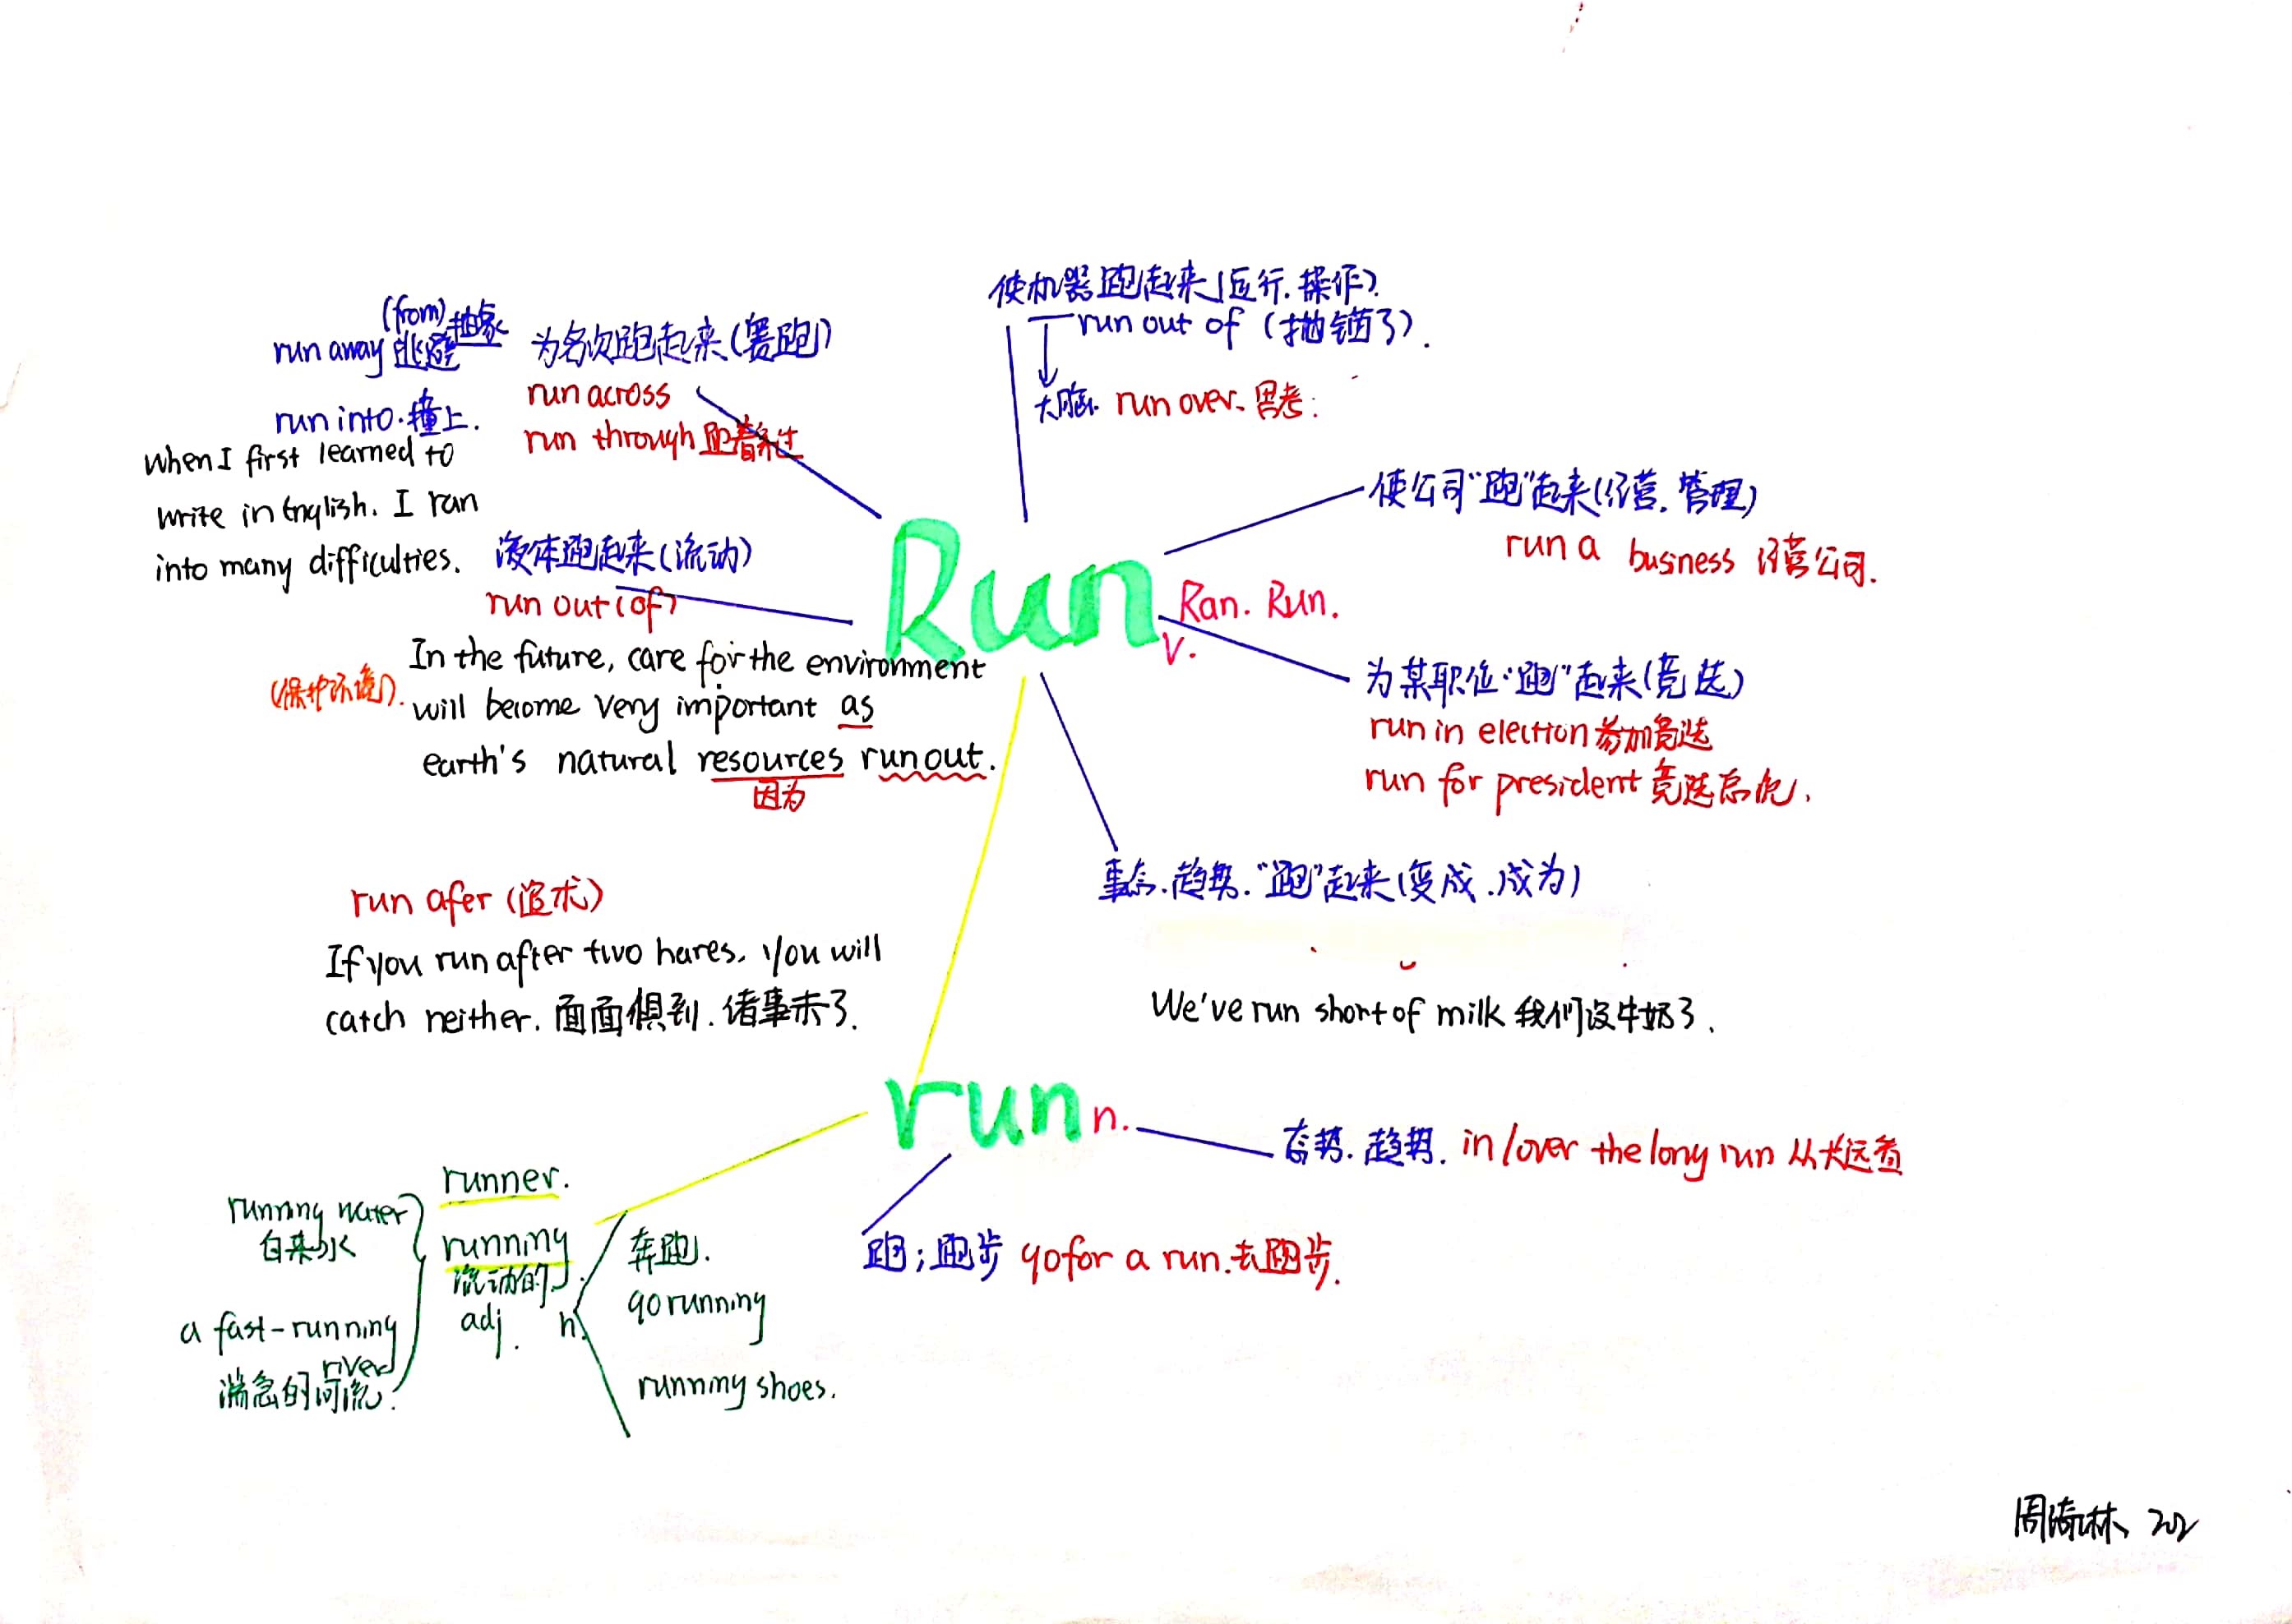 使机器跑起来(运行.操作).
run out of (抛锚了).
大脑. run over. 思考.
(from)
run away 逃避 抽象
run into. 撞上.
When I first learned to
write in English. I ran
into many difficulties.
为名次跑起来(赛跑)
run across
run through 跑着穿过
液体跑起来(流动)
run out (of)
In the future, care for the environment
(保护环境).
will become very important as
earth's natural resources run out.
因为
Run
v.
Ran. Run.
使公司"跑"起来(经营.管理)
run a business 经营公司.
为某职位"跑"起来(竞选)
run in election 参加竞选
run for president 竞选总统.
趋势."跑"起来(变成.成为)
We've run short of milk 我们没牛奶了.
run afer (追求)
If you run after two hares. you will
catch neither. 面面俱到.诸事未了.
run n.
趋势. in/over the long run 从长远看
跑;跑步 go for a run.去跑步.
runner.
running
流动的
adj.
running water
自来水
a fast-running
river
湍急的河流.
n.
奔跑.
go running
running shoes.
202